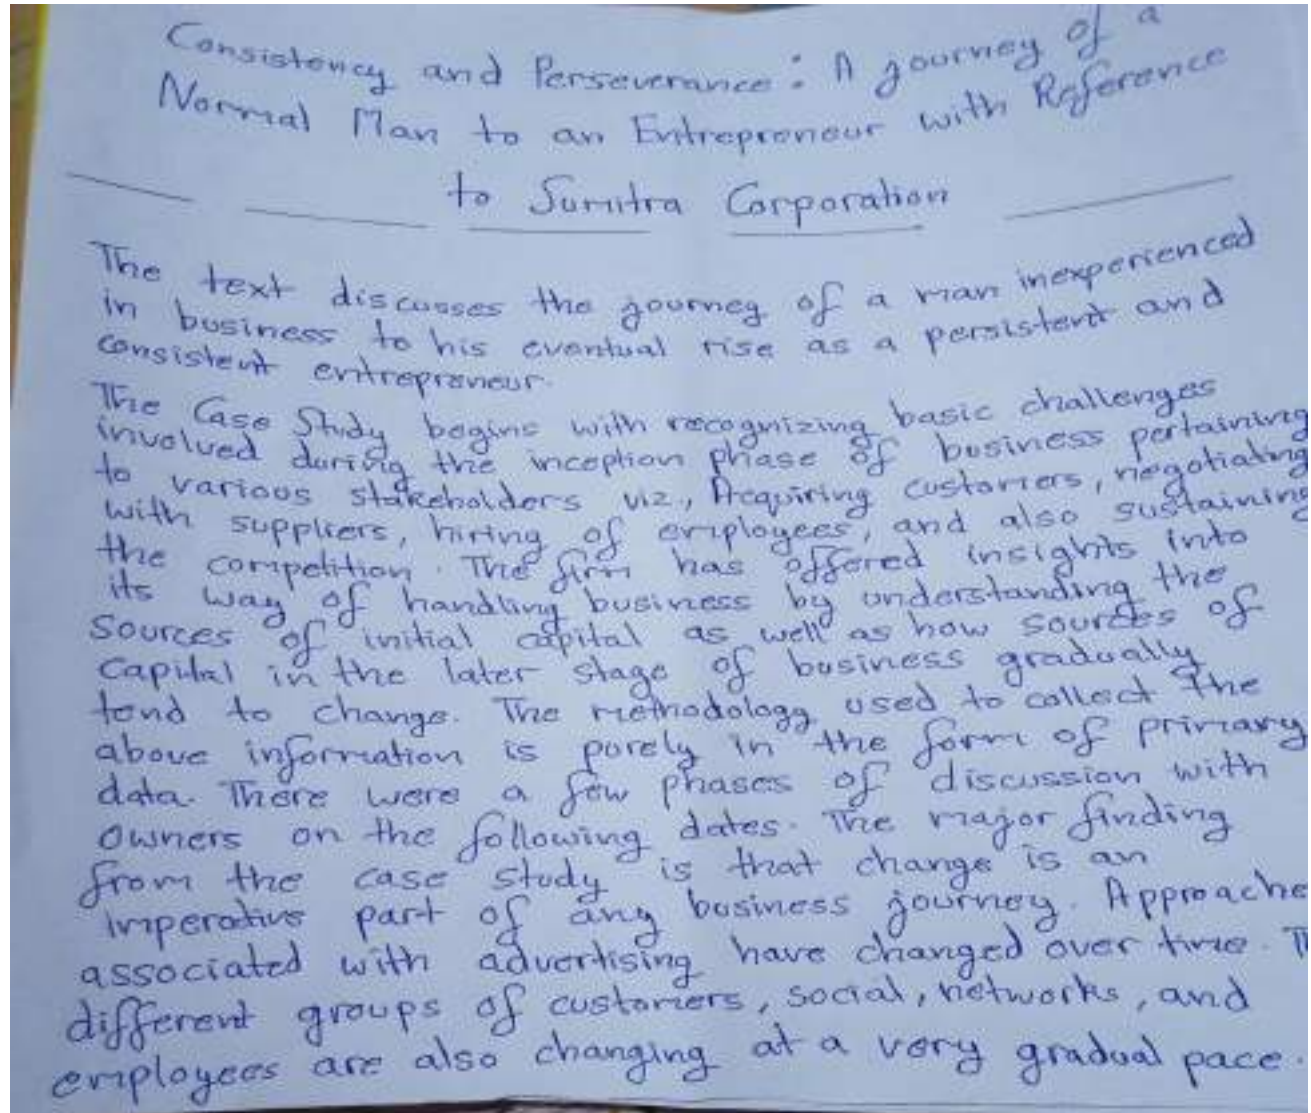 Consistency and Perseverance: A journey of a
Normal Man to an Entrepreneur with Reference
to Sumitra Corporation
The text discusses the journey of a man inexperienced
in business to his eventual rise as a persistent and
consistent entrepreneur.
The Case Study begins with recognizing basic challenges
involved during the inception phase of business pertaining
to various stakeholders viz., Acquiring customers, negotiating
with suppliers, hiring of employees, and also sustaining
the competition. The firm has offered insights into
its way of handling business by understanding the
Sources of initial capital as well as how sources of
Capital in the later stage of business gradually
tend to change. The methodology used to collect the
above information is purely in the form of primary
data. There were a few phases of discussion with
owners on the following dates. The major finding
from the case study is that change is an
Imperative part of any business journey. Approache
associated with advertising have changed over time. Th
different groups of customers, social, networks, and
employees are also changing at a very gradual pace.